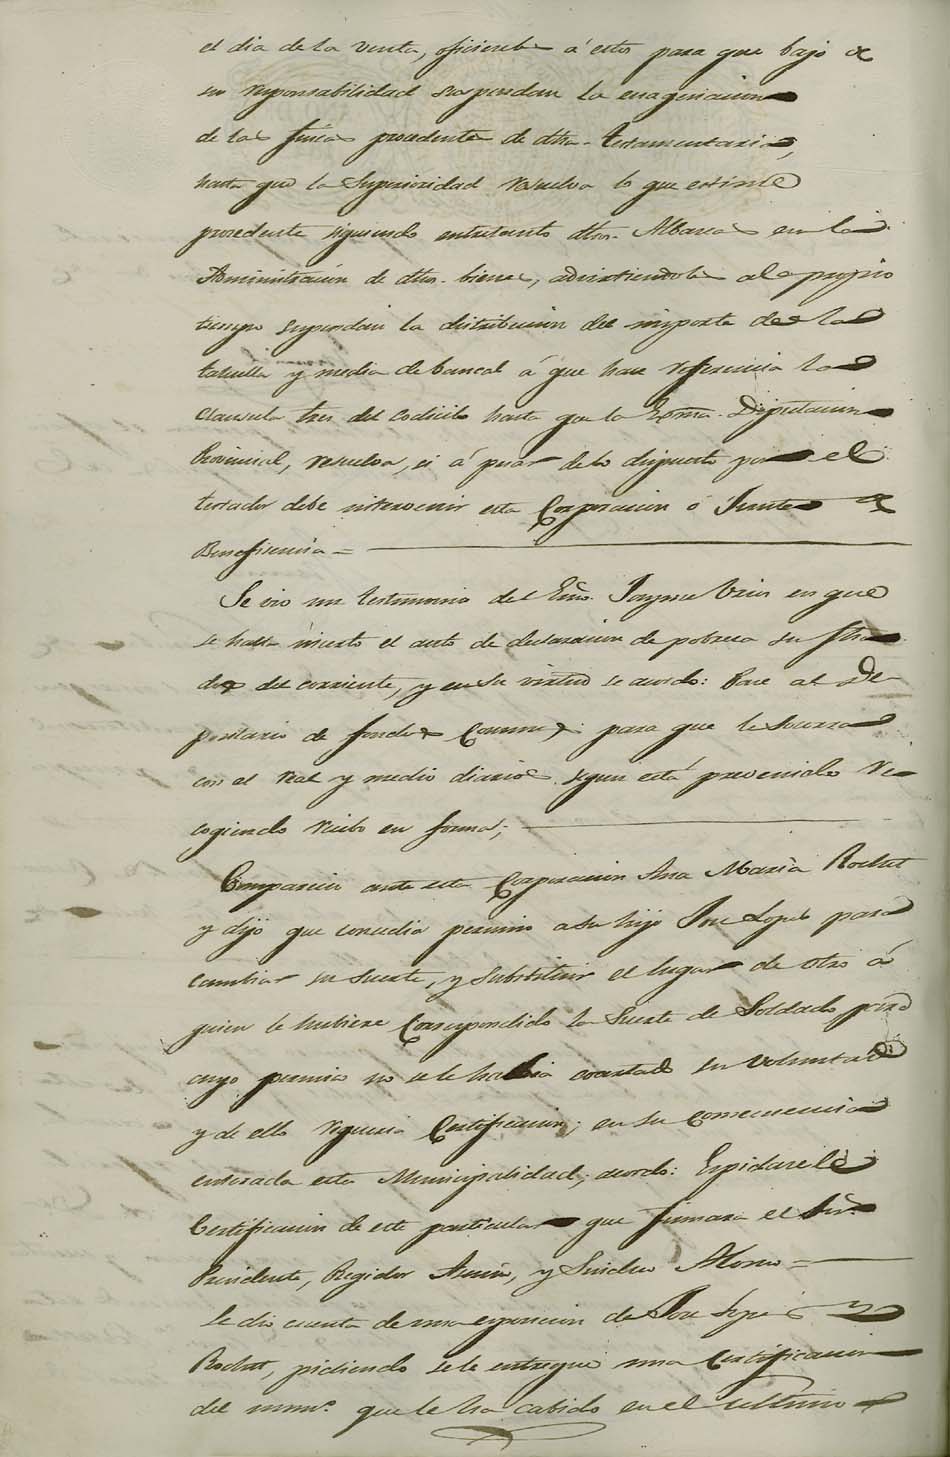 el dia de la venta, oficiesele á estos para que bajo de
su responsabilidad suspendan la enagenacion
de las fincas procedente de dha. testamentaria,
hasta que la Superioridad resuelva lo que estime
procedente siguiendo entretanto dhos. Albaceas en la
Administracion de dhos. bienes, advirtiendoles al propio
tiempo suspendan la distribucion del importe de la
tahulla y media de bancal á que hace referencia la
clausula tres del codicilo hasta que la Exma. Diputacion
Provincial, resuelva, si á pesar de lo dispuesto por el
testador debe intervenir esta Corporacion ó Junta de
Beneficencia =
Se vio un testimonio del Esno. Jayme en que
se halla inserto el auto de declaracion de pobreza su fha.
dos del corriente, y en su virtud se acordo: Pase al De-
positario de fondos Comunes para que le socorra
con el real y medio diarios segun está prevenido re-
cogiendo recibo en forma;
Comparecio ante esta Corporacion Ana Maria
y dijo que concedia permiso a su hijo Jose Lopes para
cambiar su suerte, y substituir el lugar de otro á
quien le hubiere Correspondido la Suerte de Soldado, para
cuyo permiso no se le habia coartado su voluntad
y de ello requeria Certificacion; en su consecuencia
enterada esta Municipalidad; acordo: Espidasele
Certificacion de este particular que firmara el Sor.
Presidente, Regidor, y Sindico Alonso =
Se dio cuenta de una esposicion de Jose Lopes y
pidiendo se le entregue una Certificacion
del numo. que le ha cabido en el ultimo